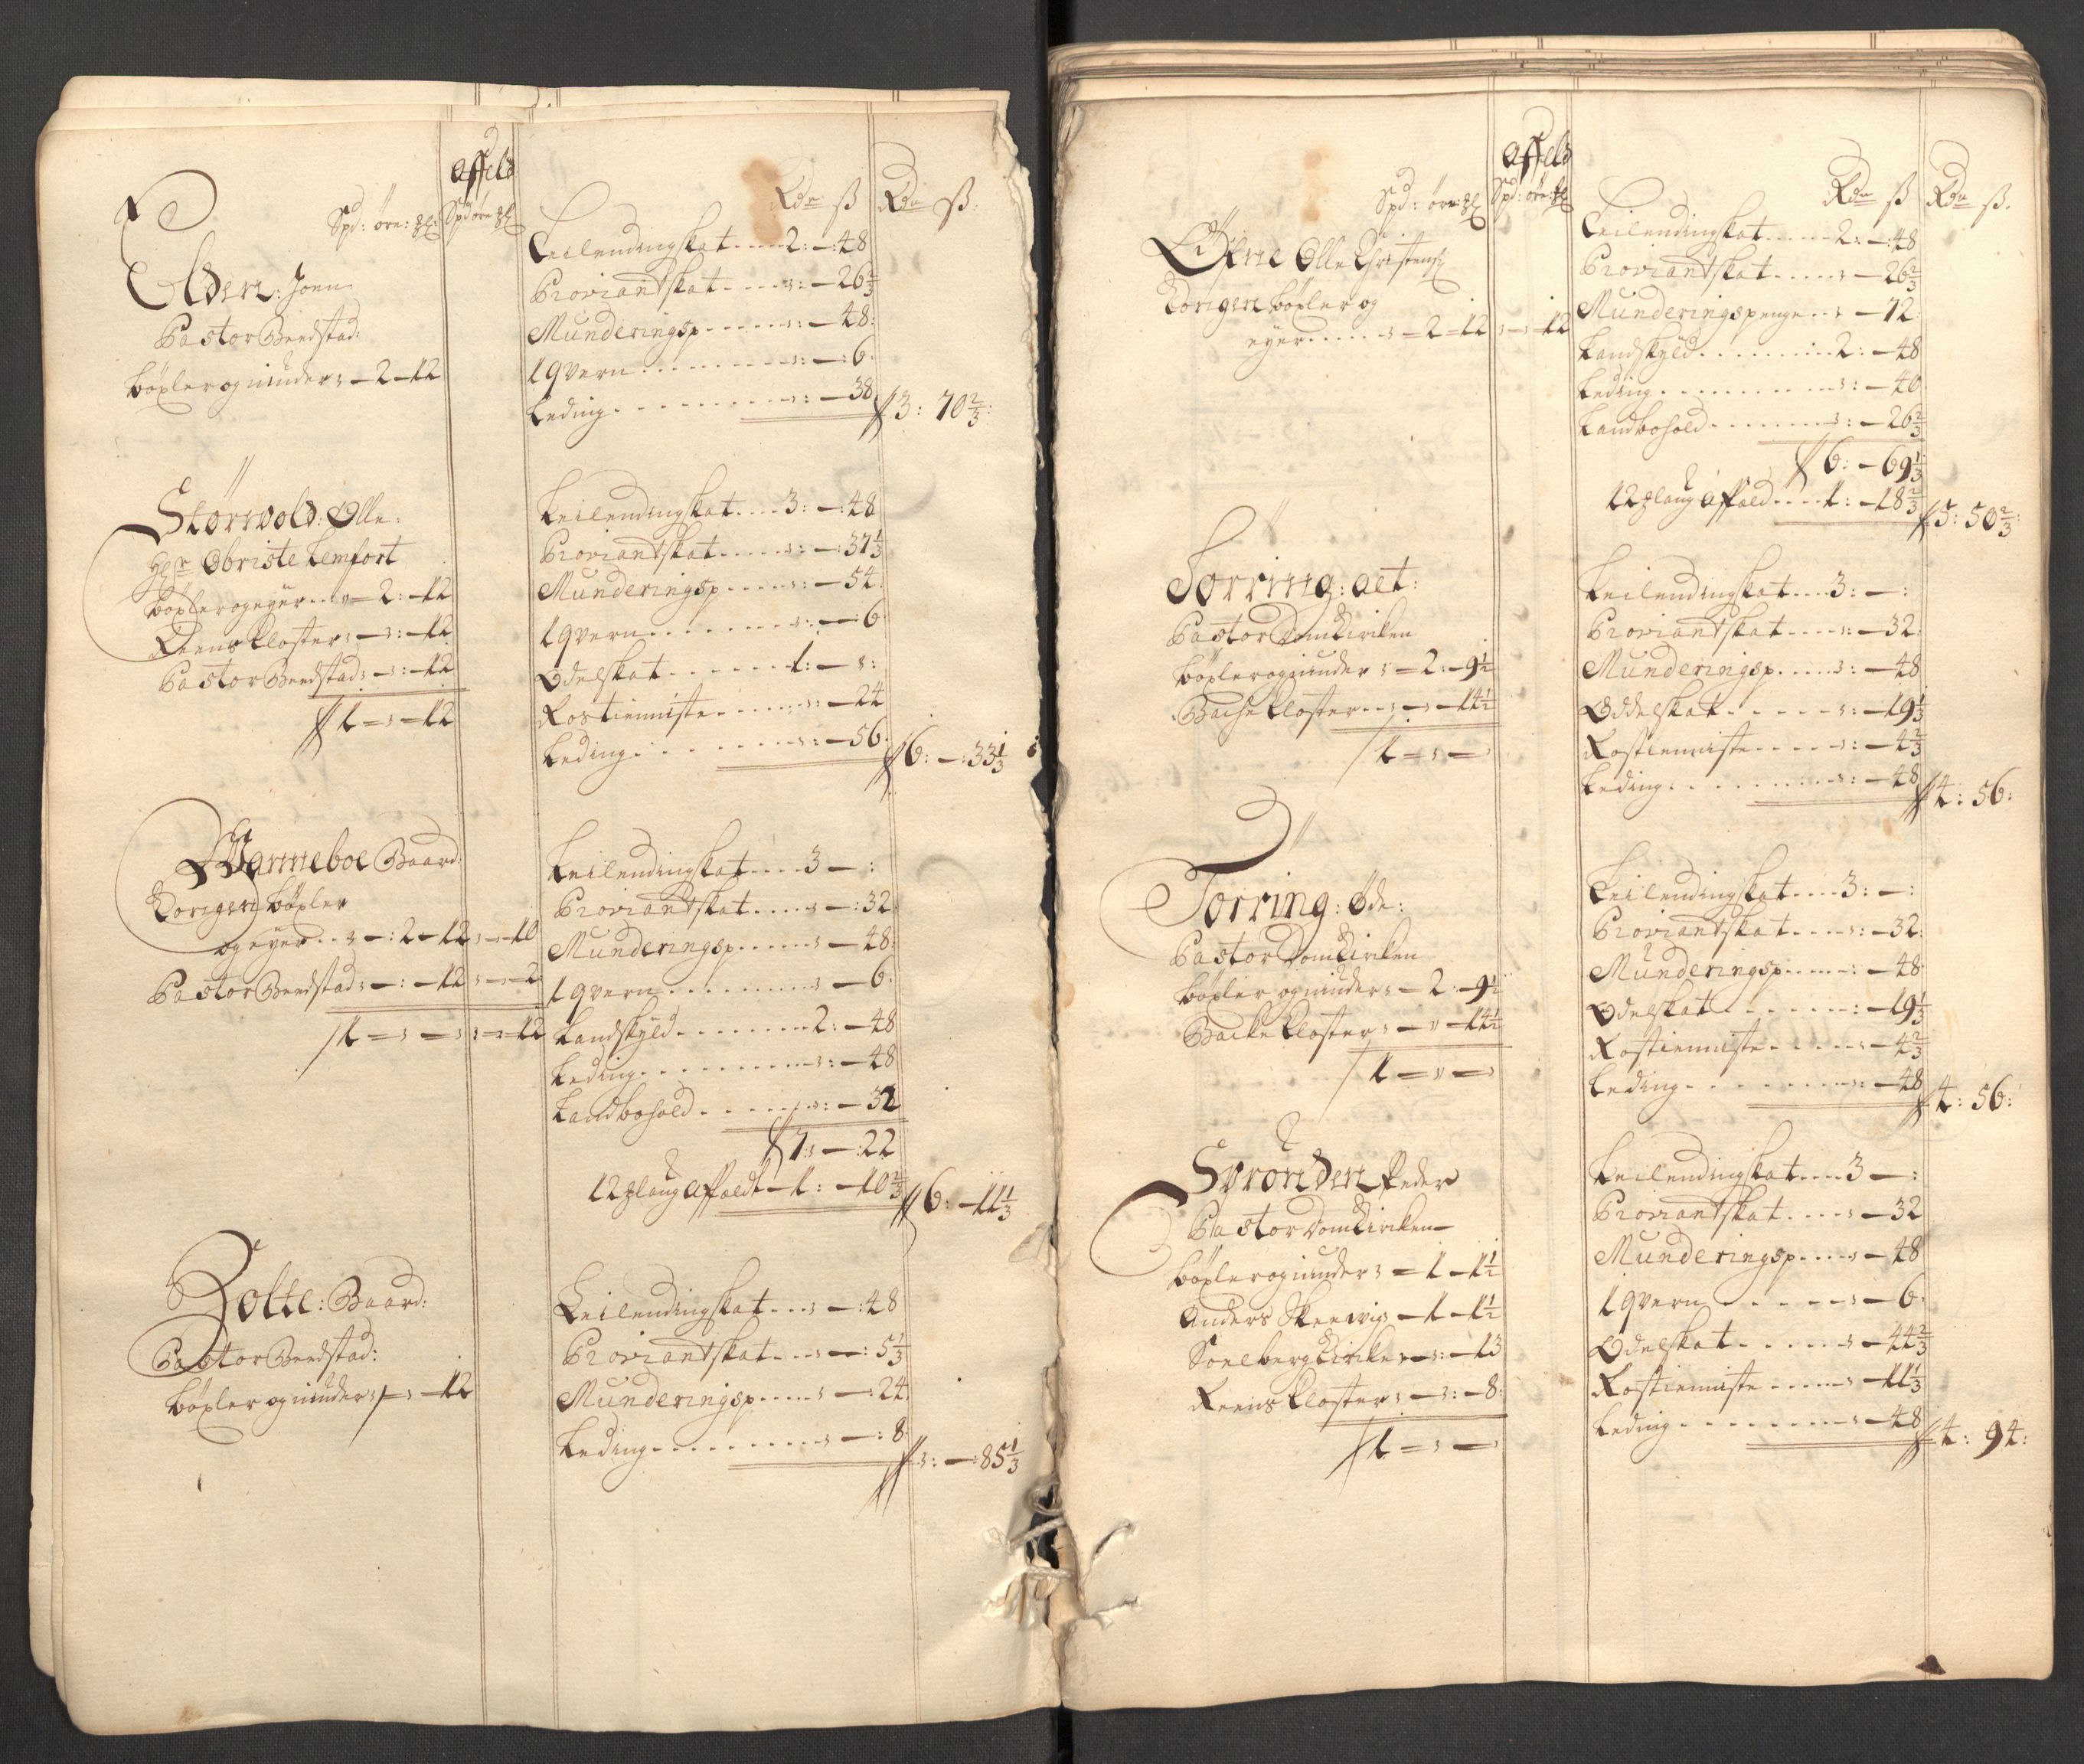 affeld
Spd: öre: ₰l: Spd öre ₰l Rdr ß Rdr ß:
Elden: Joen
Pastor Beedstad:
böxler og under: - 2 - 12
Leilendingskat .... 2: - : 48
Proviandtskat .... : - 26 2/3
Munderingsp ..... : - 48:
1 qvern ........ : - : 6:
Leding ......... : - 38
3: 70 2/3:
Störvold: Olle:
Hr Obriste Lemfort
böxler og eyer ... - 2: - 12
Reens Kloster: - : - 12
Pastor Beedstad: - : - 12
1 - - 12
Leilendingskat .... 3: - : 48
Proviandtskat ..... : - : 37 1/3
Munderingsp ..... : - 54:
1 qvern ....... : - : 6
Odelskat ....... 1: - :
Rostienniste ...... : - 24
Leding ........ : - 56:
6: - : 33 1/3
Wanneboe Baard:
Kongen böxler
og eyer ... - : 2 - 12 - 10
Pastor Beedstad: - : - 12 - 2
1 - - 12
Leilendingskat .... 3 - :
Proviandtskat ..... - : 32
Munderingsp ...... - 48:
1 qvern ......... - 6:
Landskyld ........ 2: - 48
Leding .......... : - 48
Landbohold ....... : - 32
7: - : 22
12 ₰laug affaldt - 1: - 10 2/3
6: - 11 1/3
Holte: Baard:
Pastor Beedstad:
böxler og under - - 12
Leilendingskat ... - : 48
Proviandtskat .... - : 5 1/3
Munderingsp ..... - : 24:
Leding .......... - : 8
: - : 85 1/3
affeld
Spd: öre: ₰l Spd: öre: ₰l Rdr ß Rdr ß.
Öfne Olle Christens
Kongen böxler og
eyer ..... - 2 - 12 - - 12
Leilendingskat ..... 2: - : 48
Proviandtskat ..... - 26 2/3
Munderingspenge .. - 12
Landskyld ........ 2: - 48
Leding .......... : - 40
Landbohold ....... : - 26 2/3
6: - 69 1/3
12 ₰laug affald .... 1: - 18 2/3
5: 50 2/3:
Torring: Aet:
Pastor Domkirken
böxler og under: - 2: - 9 1/2
Backe Kloster .. - - 14 1/2
1 - -
Leilendingskat .... 3: - :
Proviandtskat .... : - 32:
Munderingsp ..... : - 48
Oddelskat ...... : - 19 1/3
Rostienniste ..... : - 4 2/3
Leding ........ : - 48
4: 56:
Torring: Öde:
Pastor Domkirken
böxler og under: - 2: - 9 1/2
Backe Kloster: - - 14 1/2
1 - -
Leilendingskat .... 3: - :
Proviandtskat .... : - 32:
Munderingsp ..... : - 48
Odelskat ....... : - 19 1/3
Rostienniste ..... - 4 2/3
Leding ......... : - 48
4: 56:
Svonden Peder
Pastor Domkirken
böxler og under: - 1 - 1 1/2
Anders - 1 - 1 1/2
Soelberg Kircke - : - 13
Reens Kloster: - : - 8:
1 - -
Leilendingskat .... 3 - :
Proviandtskat .... - 32
Munderingsp .... - 48
1 qvern ...... - 6:
Odelskat ...... - 44 2/3
Rostienniste ..... - 11 1/3
Leding ........ - 48
4: 94: